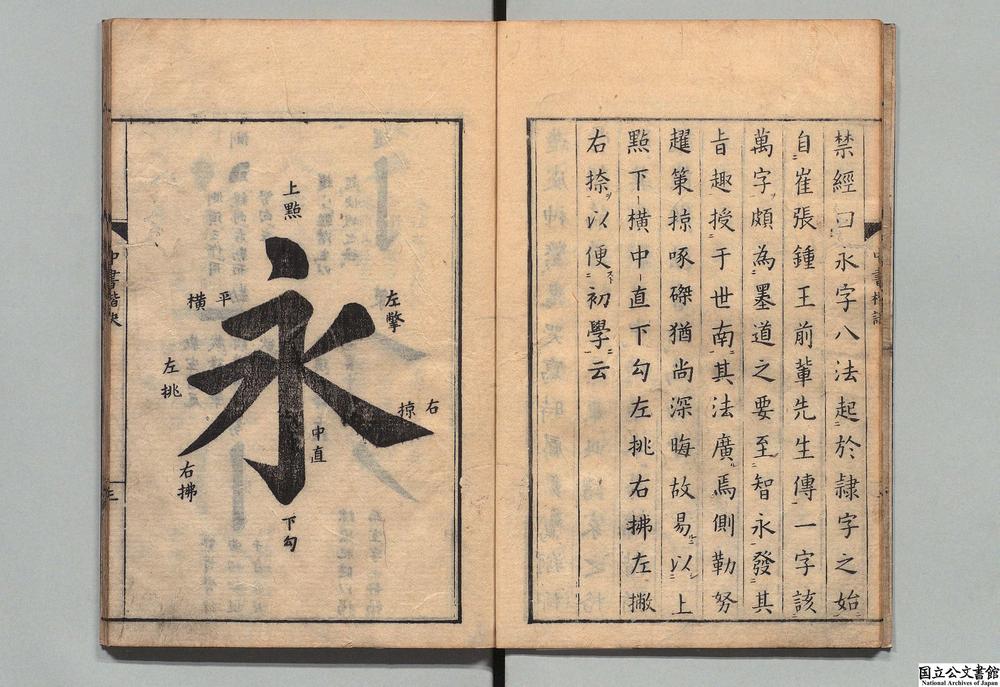 禁經曰永字八法起於隷字之始
自崔張鍾王前軰先生傳一字該
萬字頗為墨道之要至智永發其
旨趣授于世南其法廣焉側勒努
趯策掠啄磔猶尚深晦故易以上
點下横中直下勾左挑右拂左撇
右捺以便初學云
上點
左撆
平横
左挑
右掠
中直
右拂
下勾
三
国立公文書館
National Archives of Japan